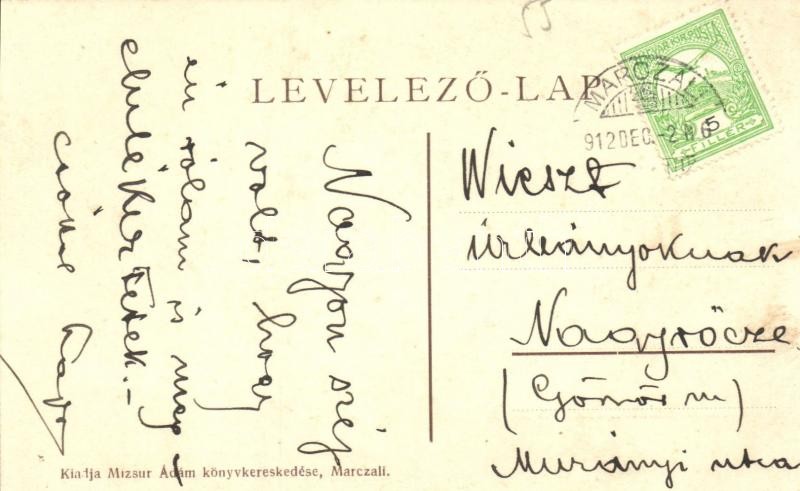 55
LEVELEZŐ-LAP
MAGYAR KIR. POSTA
5
FILLÉR
MARCZALI
912 DEC. -2
Nagyon szép
volt, hogy
én rólam is meg-
emlékeztetek.–
csókol
Wieszt
Úrleányoknak
Nagyrőcze
(Gömör m)
Murányi utca
Kiadja Mizsur Ádám könyvkereskedése, Marczali.